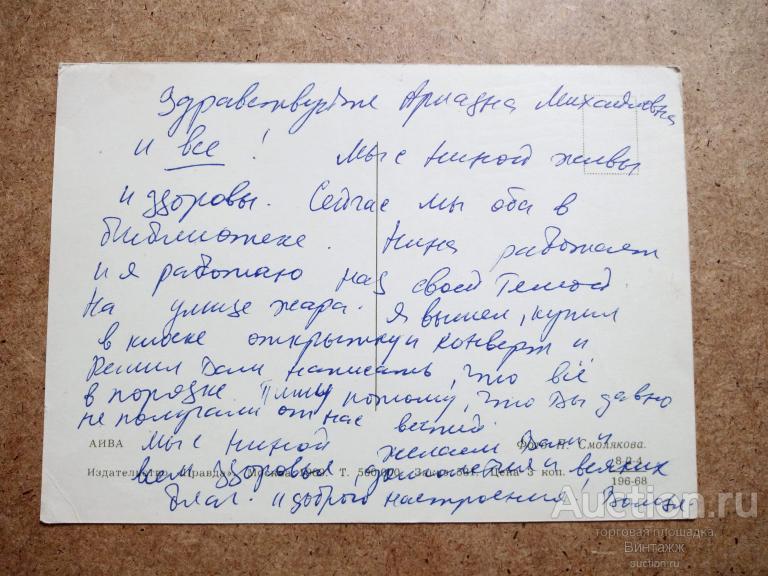 Здравствуйте Ариадна Михайловна
и все! Мы с Ниной живы
и здоровы. Сейчас мы оба в
библиотеке. Нина работает
и я работаю над своей темой.
На улице жара. Я вышел, купил
в киоске открытку и конверт и
решил Вам написать, что всё
в порядке. Пишу потому, что Вы давно
не получали от нас вестей
Мы с Ниной желаем Вам и
всем здоровья долголетия и всяких
благ. и доброго настроения,
АЙВА Фото Н. Смолякова.
Издательство «Правда». Москва. Т. 500 000. Цена 3 коп.
8 2-4
196-68
Auction.ru
торговая площадка
Винтажж
auction.ru